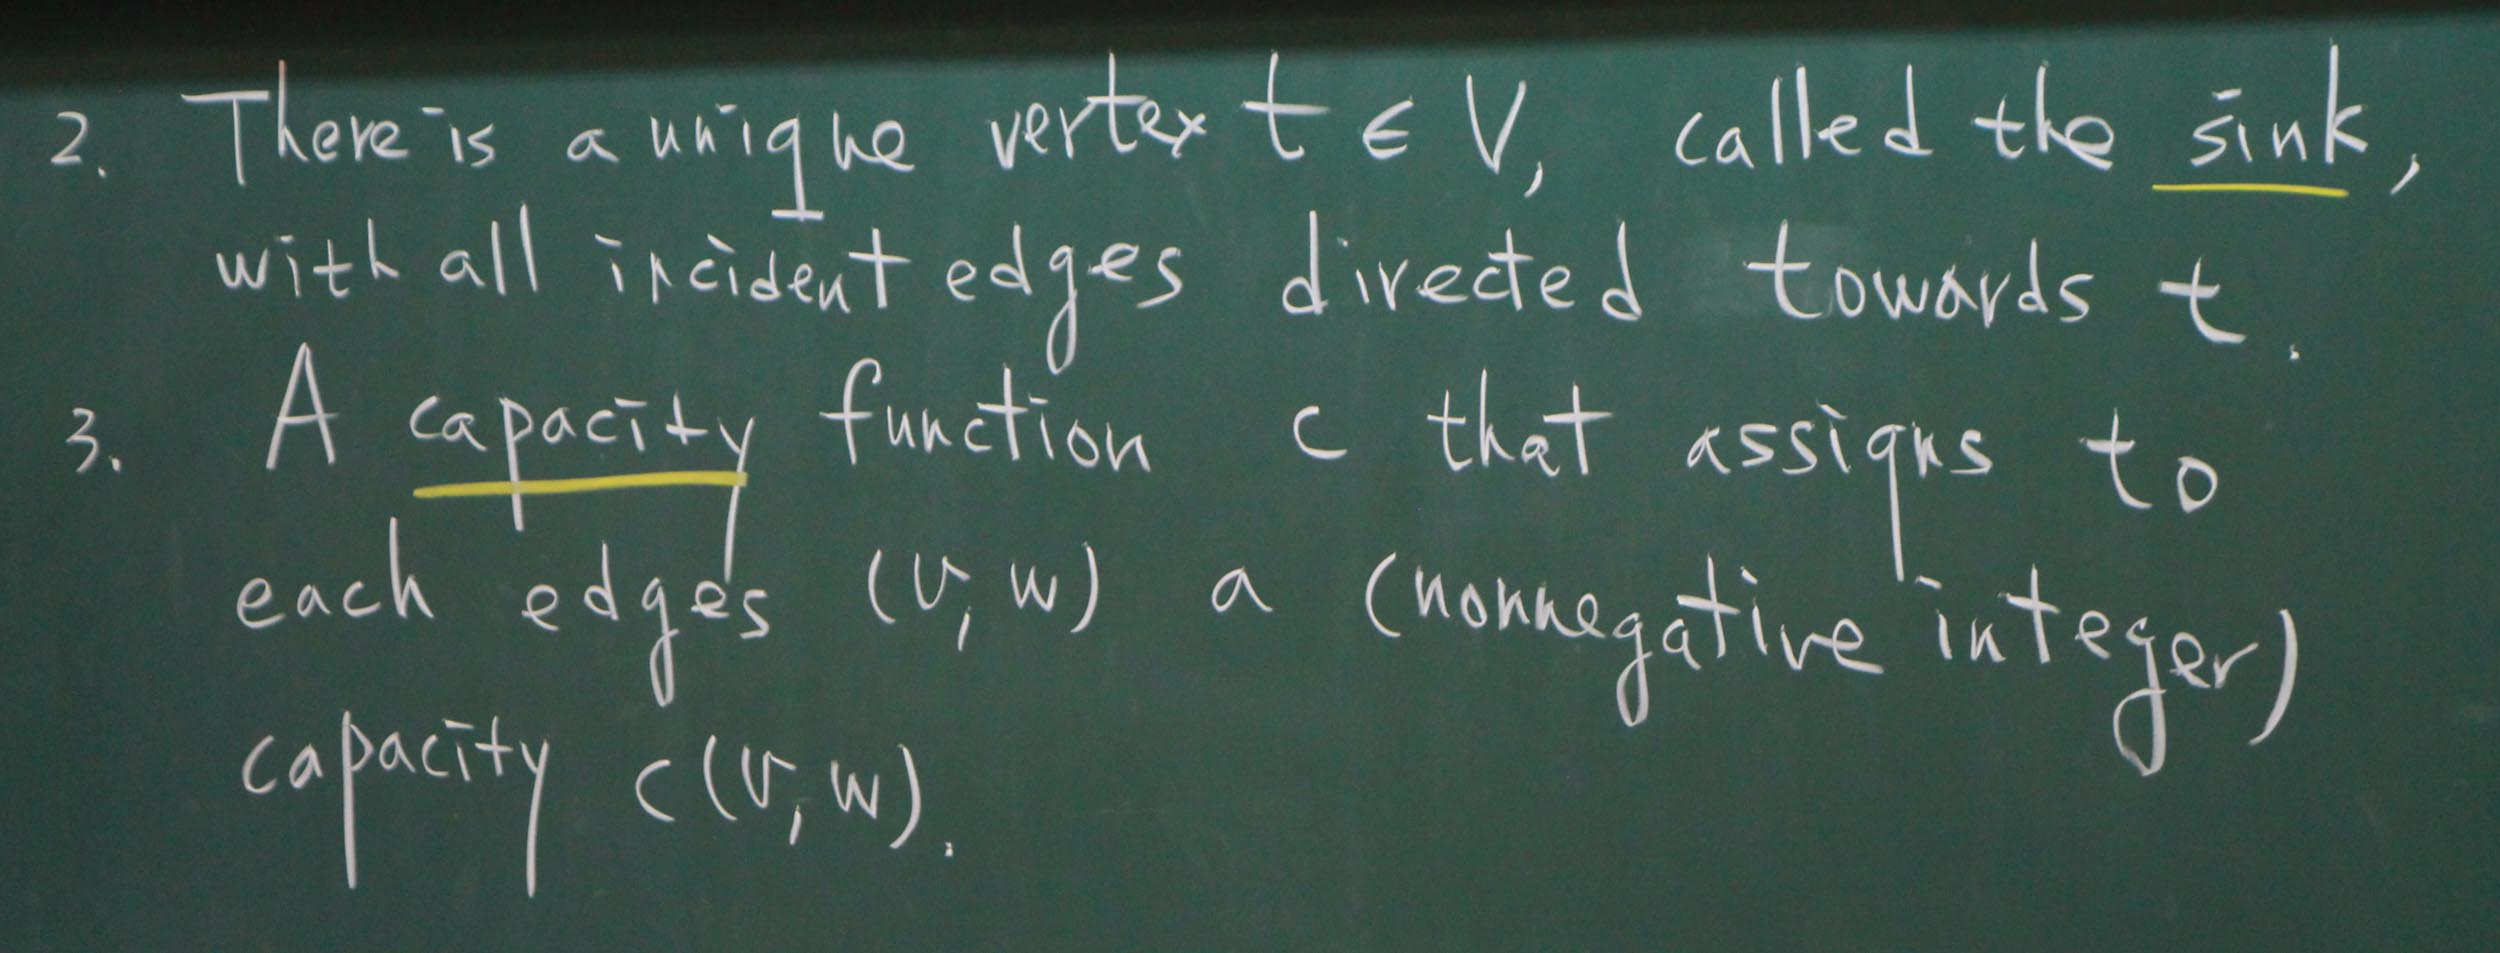 2. There is a unique vertex t ∈ V, called the sink,
with all incident edges directed towards t.
3. A capacity function c that assigns to
each edges (v, w) a (nonnegative integer)
capacity c(v, w).